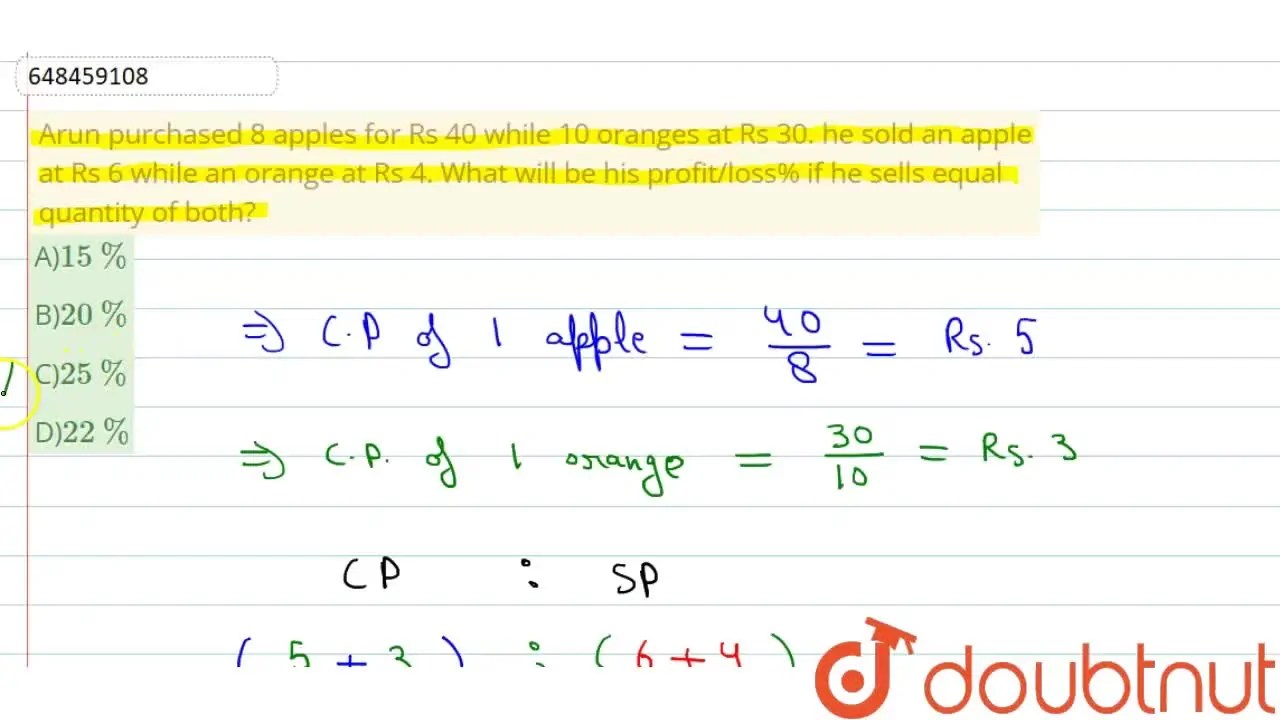 648459108
Arun purchased 8 apples for Rs 40 while 10 oranges at Rs 30. he sold an apple
at Rs 6 while an orange at Rs 4. What will be his profit/loss% if he sells equal
quantity of both?
A)15 %
B)20 %
C)25 %
D)22 %
⇒ C.P of 1 apple = 40/8 = Rs. 5
⇒ C.P. of 1 orange = 30/10 = Rs. 3
CP : SP
( 5 + 3 ) : ( 6 + 4 )
doubtnut